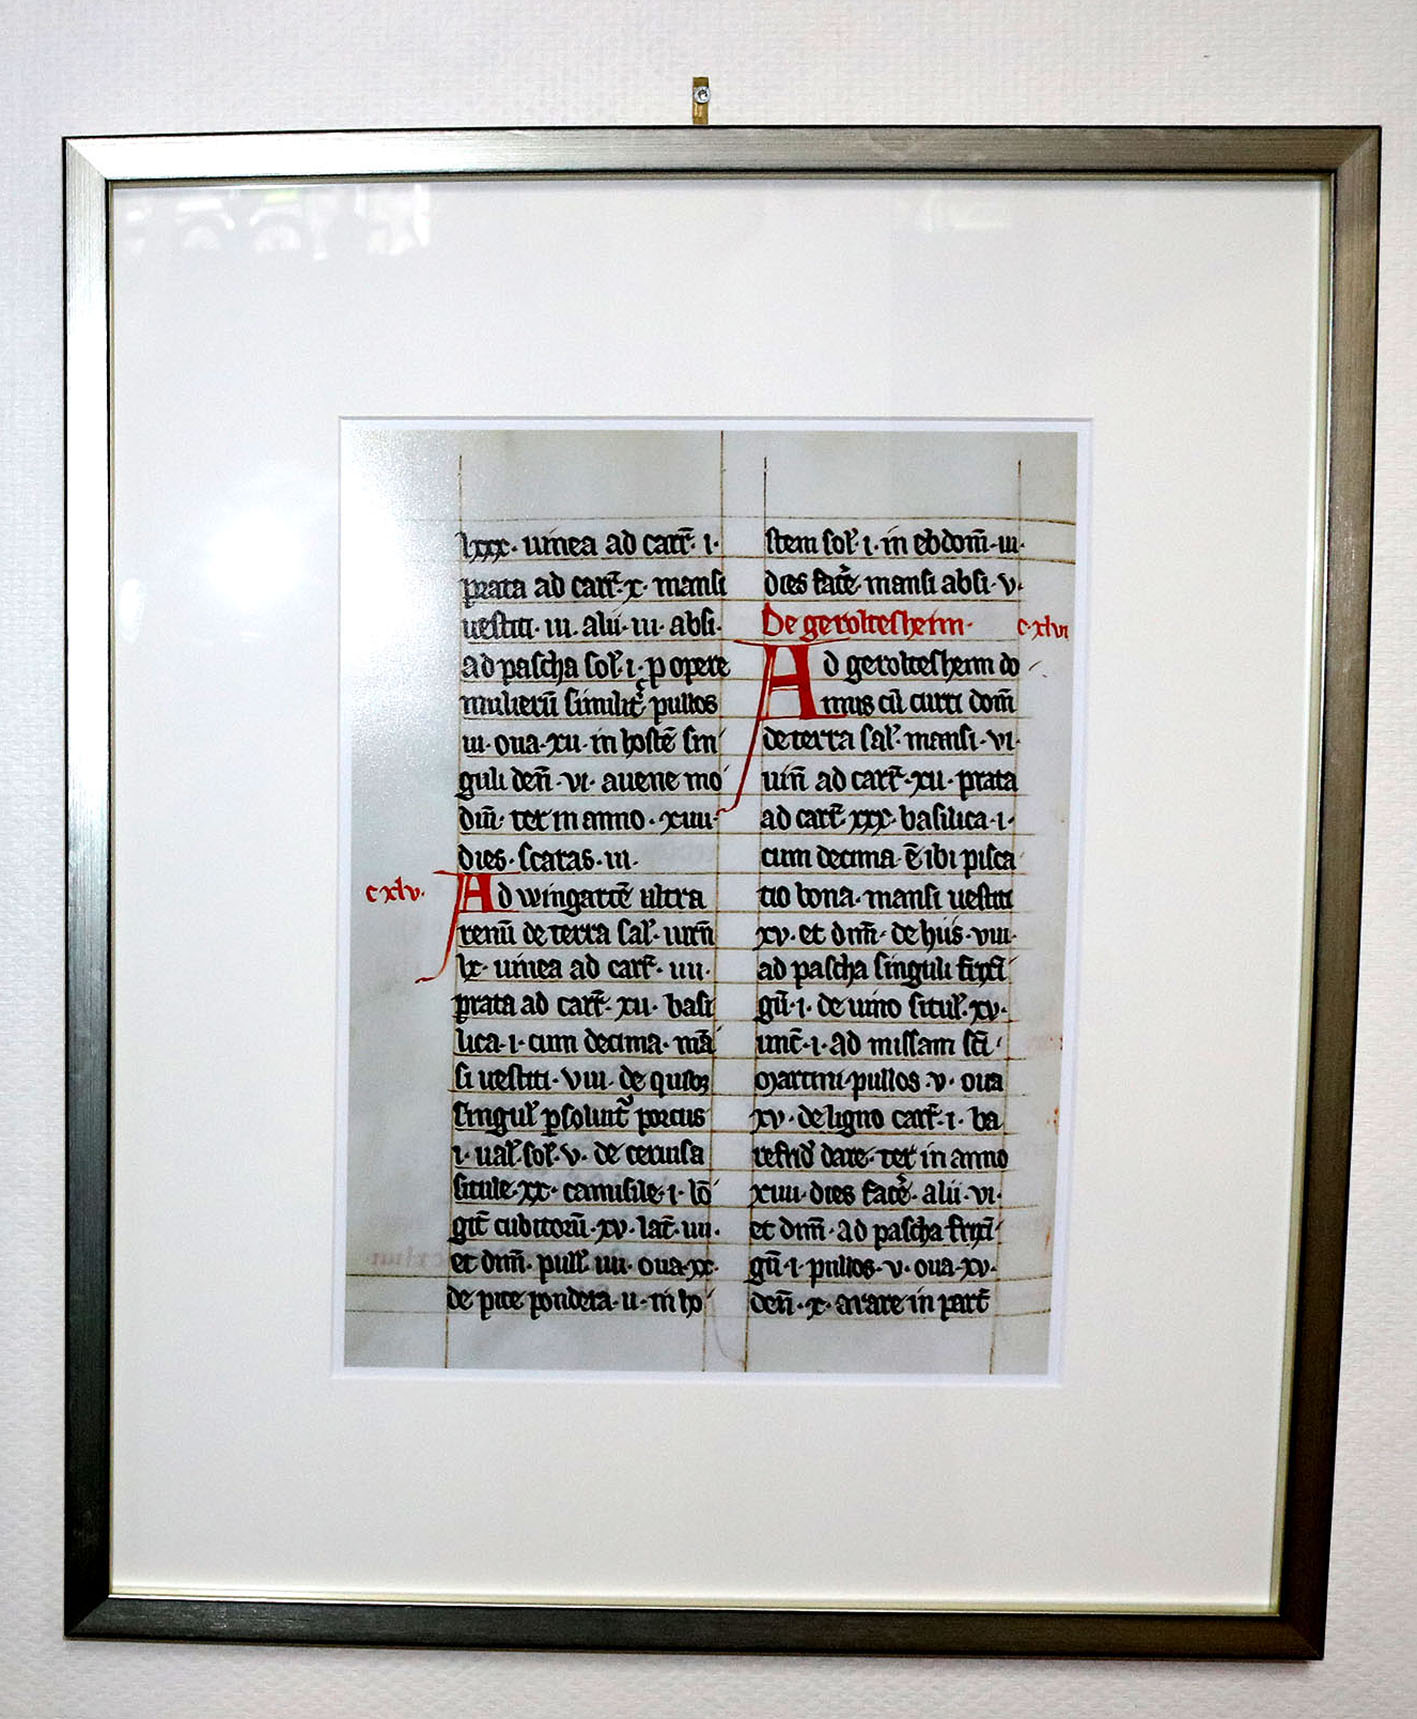 lxxx· uinea ad carr̄· i·
prata ad carr̄·x· mansi
uestiti· iii· alii· iii· absi·
ad pascha sol̄· i· p opere
mulierū similit̉ pullos
iii· oua·xii· in hostē sin
guli den̄·vi· auene mo
diū· tet̄ in anno· xiiii·
dies· scaras· iii·
cxlv·
Ad wingartē ultra
renū de terra sal̄· iurn̄
lx· uinea ad carr̄· iiii·
prata ad carr̄· xii· basi
lica·i·cum decima· mā
si uestiti· viii· de quibꝫ
singul̄ psoluūt porcus
i· ual̄·sol̄·v· de ceruisa
situle·xx· camisile·i· lō
git̄ cubitorū·xv· lat̄· iiii·
et dim̄· pull̄ iiii· oua·xx·
de pice pondera·ii· in ho
stem sol̄· i· in ebdom̄·iii·
dies facē̉· mansi absi·v·
De geroltesheim·
c·xlvi
Ad geroltesheim do
mus cū curti dom̄
de terra sal̄· mansi·vi·
uin̄ ad carr̄·xii· prata
ad carr̄·xxx· basilica·i·
cum decima· ē ibi pisca
tio bona· mansi uestiti
xv· et dim̄· de hiis·viii·
ad pascha singuli frisi
gū·i· de uino situl̄·xv·
unc̄·i·ad missam sc̄i
martini·pullos·v· oua
xv· de ligno carr̄·i· pa
refrid̄ dare· tet̄ in anno
xiiii·dies facē̉· alii·vi·
et dim̄· ad pascha frisi
gū·i·pullos·v·oua·xv·
den̄·x· arare in part̄